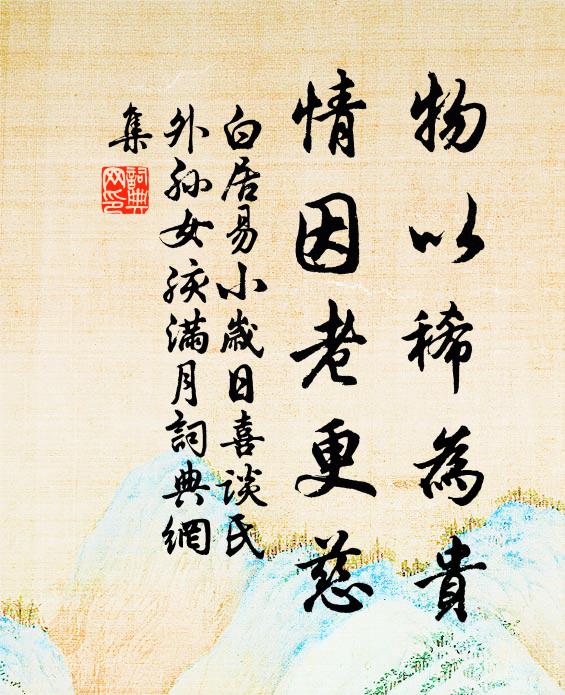 物以稀為貴
情因老更慈
白居易小歲日喜談氏
外孫女孩滿月詞典網
集
詞典
网印